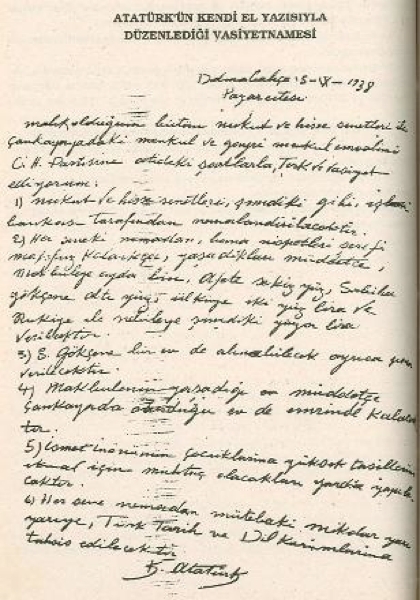 ATATÜRK'ÜN KENDİ EL YAZISIYLA
DÜZENLEDİĞİ VASİYETNAMESİ
Dolmabahçe: 5-IX-1938
Pazarertesi
malik olduğum bütün nukut ve hisse senetleri ile
Çankayadaki menkul ve gayri menkul emvalimi
C. H. Partisine atideki şartlarla, terk ve vasiyet
ediyorum:
1) nukut ve hisse senetleri, şimdiki gibi, iş
bankası tarafından nemalandırılacaktır.
2) Her seneki nemadan, bana nispetleri şerefi
mahfuz kaldıkça, yaşadıkları müddetçe,
Makbuleye ayda bin, Afete sekiz yüz, Sabiha
gökçene altı yüz, ülküye iki yüz lira ve
Rukiye ile nebileye şimdiki yüzer lira
verilecektir.
3) S. Gökçene bir ev de alınabilecek ayrıca para
verilecektir.
4) Makbulenin yaşadığı müddetçe
Çankayada oturduğu ev de emrinde kalacak
tır.
5) ismet inönünün çocuklarına yüksek tahsillerini
ikmal için muhtaç olacakları yardım yapıla
caktır.
6) Her sene nemadan mütebaki miktar yarı
yarıya, Türk Tarih ve Dil Kurumlarına
tahsis edilecektir.
K. Atatürk